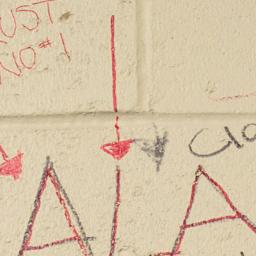 UST
NO #1
Clo
A I A